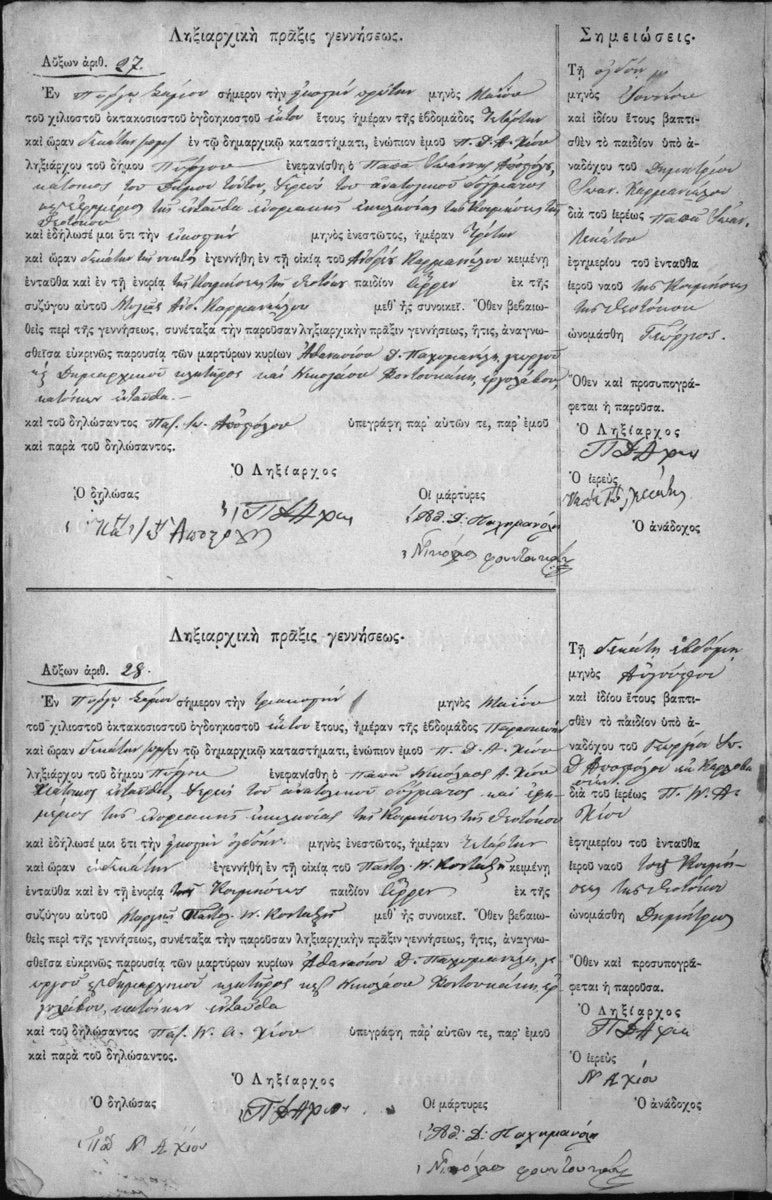 Ληξιαρχικὴ πρᾶξις γεννήσεως.
Αὔξων ἀριθ. 27.
Ἐν Πύργῳ Σάμου σήμερον τὴν εἰκοστὴν πρώτην μηνὸς Μαΐου
τοῦ χιλιοστοῦ ὀκτακοσιοστοῦ ὀγδοηκοστοῦ ἕκτου ἔτους ἡμέραν τῆς ἑβδομάδος Τετάρτην
καὶ ὥραν δεκάτην π.μ. ἐν τῷ δημαρχικῷ καταστήματι, ἐνώπιον ἐμοῦ Π. Δ. Α. Χίου
ληξιάρχου τοῦ δήμου Πύργου ἐνεφανίσθη ὁ Παπᾶ Ἰωάννης
κάτοικος τοῦ Δήμου τούτου, Ἱερεὺς τοῦ ἀνατολικοῦ δόγματος
καὶ ἐφημέριος τῆς ἐνταῦθα ἐνοριακῆς ἐκκλησίας τῆς Κοιμήσεως τῆς
Θεοτόκου
καὶ ἐδήλωσέ μοι ὅτι τὴν εἰκοστὴν μηνὸς ἐνεστῶτος, ἡμέραν Τρίτην
καὶ ὥραν δεκάτην τῆς νυκτὸς ἐγεννήθη ἐν τῇ οἰκίᾳ τοῦ Ἀνδρέα Καρμανιόλου κειμένῃ
ἐνταῦθα καὶ ἐν τῇ ἐνορίᾳ τῆς Κοιμήσεως τῆς Θεοτόκου παιδίον ἄῤῥεν ἐκ τῆς
συζύγου αὐτοῦ Ἀνδ. Καρμανιόλου μεθ' ἧς συνοικεῖ. Ὅθεν βεβαιω-
θεὶς περὶ τῆς γεννήσεως, συνέταξα τὴν παροῦσαν ληξιαρχικὴν πρᾶξιν γεννήσεως, ἥτις, ἀναγνω-
σθεῖσα εὐκρινῶς παρουσίᾳ τῶν μαρτύρων κυρίων Ἀθανασίου Δ. Παχυμανώλη, γεωργοῦ
καὶ Δημαρχικοῦ κλητῆρος καὶ Νικολάου Φουντουκάκη, ἐργολάβου,
κατοίκων ἐνταῦθα.—
καὶ τοῦ δηλώσαντος Παπ. Ἰω. ὑπεγράφη παρ' αὐτῶν τε, παρ' ἐμοῦ
καὶ παρὰ τοῦ δηλώσαντος.
Ὁ Ληξίαρχος
Ὁ δηλώσας
Οἱ μάρτυρες
Ἀθ. Δ. Παχημανόλη
Νικόλαος φουντουκάκη
Σημειώσεις.
Τῇ ὀγδόῃ
μηνὸς Ἰουνίου
καὶ ἰδίου ἔτους βαπτι-
σθὲν τὸ παιδίον ὑπὸ ἀ-
ναδόχου τοῦ Δημητρίου
Ἰωαν. Καρμανιόλου
διὰ τοῦ ἱερέως παπᾶ Ἰωαν.
Λεκάτου
ἐφημερίου τοῦ ἐνταῦθα
ἱεροῦ ναοῦ τῆς Κοιμήσεως
τῆς Θεοτόκου
ὠνομάσθη Γεώργιος.
Ὅθεν καὶ προσυπογρά-
φεται ἡ παροῦσα.
Ὁ Ληξίαρχος
Ὁ ἱερεὺς
Ὁ ἀνάδοχος
Ληξιαρχικὴ πρᾶξις γεννήσεως.
Αὔξων ἀριθ. 28.
Ἐν Πύργῳ Σάμου σήμερον τὴν τριακοστὴν μηνὸς Μαΐου
τοῦ χιλιοστοῦ ὀκτακοσιοστοῦ ὀγδοηκοστοῦ ἕκτου ἔτους, ἡμέραν τῆς ἑβδομάδος Παρασκευὴν
καὶ ὥραν δεκάτην π.μ. ἐν τῷ δημαρχικῷ καταστήματι, ἐνώπιον ἐμοῦ Π. Δ. Α. Χίου
ληξιάρχου τοῦ δήμου Πύργου ἐνεφανίσθη ὁ Παπᾶ Νικόλαος Α. Χίου
κάτοικος ἐνταῦθα, Ἱερεὺς τοῦ ἀνατολικοῦ δόγματος καὶ ἐφη-
μέριος τῆς ἐνοριακῆς ἐκκλησίας τῆς Κοιμήσεως τῆς Θεοτόκου
καὶ ἐδήλωσέ μοι ὅτι τὴν εἰκοστὴν ὀγδόην μηνὸς ἐνεστῶτος, ἡμέραν Τετάρτην
καὶ ὥραν ἑνδεκάτην ἐγεννήθη ἐν τῇ οἰκίᾳ τοῦ Παντελ. Ν. Κονταξῆ κειμένῃ
ἐνταῦθα καὶ ἐν τῇ ἐνορίᾳ τῆς Κοιμήσεως παιδίον ἄῤῥεν ἐκ τῆς
συζύγου αὐτοῦ Μαριγῶς Παντελ. Ν. Κονταξῆ μεθ' ἧς συνοικεῖ. Ὅθεν βεβαιω-
θεὶς περὶ τῆς γεννήσεως, συνέταξα τὴν παροῦσαν ληξιαρχικὴν πρᾶξιν γεννήσεως, ἥτις, ἀναγνω-
σθεῖσα εὐκρινῶς παρουσίᾳ τῶν μαρτύρων κυρίων Ἀθανασίου Δ. Παχυμανώλη, γε-
ωργοῦ καὶ δημαρχικοῦ κλητῆρος καὶ Νικολάου Φουντουκάκη, ἐρ-
γολάβου, κατοίκων ἐνταῦθα
καὶ τοῦ δηλώσαντος Παπ. Ν. Α. Χίου ὑπεγράφη παρ' αὐτῶν τε, παρ' ἐμοῦ
καὶ παρὰ τοῦ δηλώσαντος.
Ὁ Ληξίαρχος
Ὁ δηλώσας
Παπ Ν Α χίου
Οἱ μάρτυρες
Ἀθ. Δ. Παχημανόλη
Νικόλαος φουντουκάκη
Τῇ δεκάτῃ ἑβδόμῃ
μηνὸς Αὐγούστου
καὶ ἰδίου ἔτους βαπτι-
σθὲν τὸ παιδίον ὑπὸ ἀ-
ναδόχου τοῦ Γεωργίου
διὰ τοῦ ἱερέως Π. Ν. Α.
Χίου
ἐφημερίου τοῦ ἐνταῦθα
ἱεροῦ ναοῦ τῆς Κοιμή-
σεως τῆς Θεοτόκου
ὠνομάσθη Δημήτριος
Ὅθεν καὶ προσυπογρά-
φεται ἡ παροῦσα.
Ὁ Ληξίαρχος
Ὁ ἱερεὺς
Ν Α χίου
Ὁ ἀνάδοχος